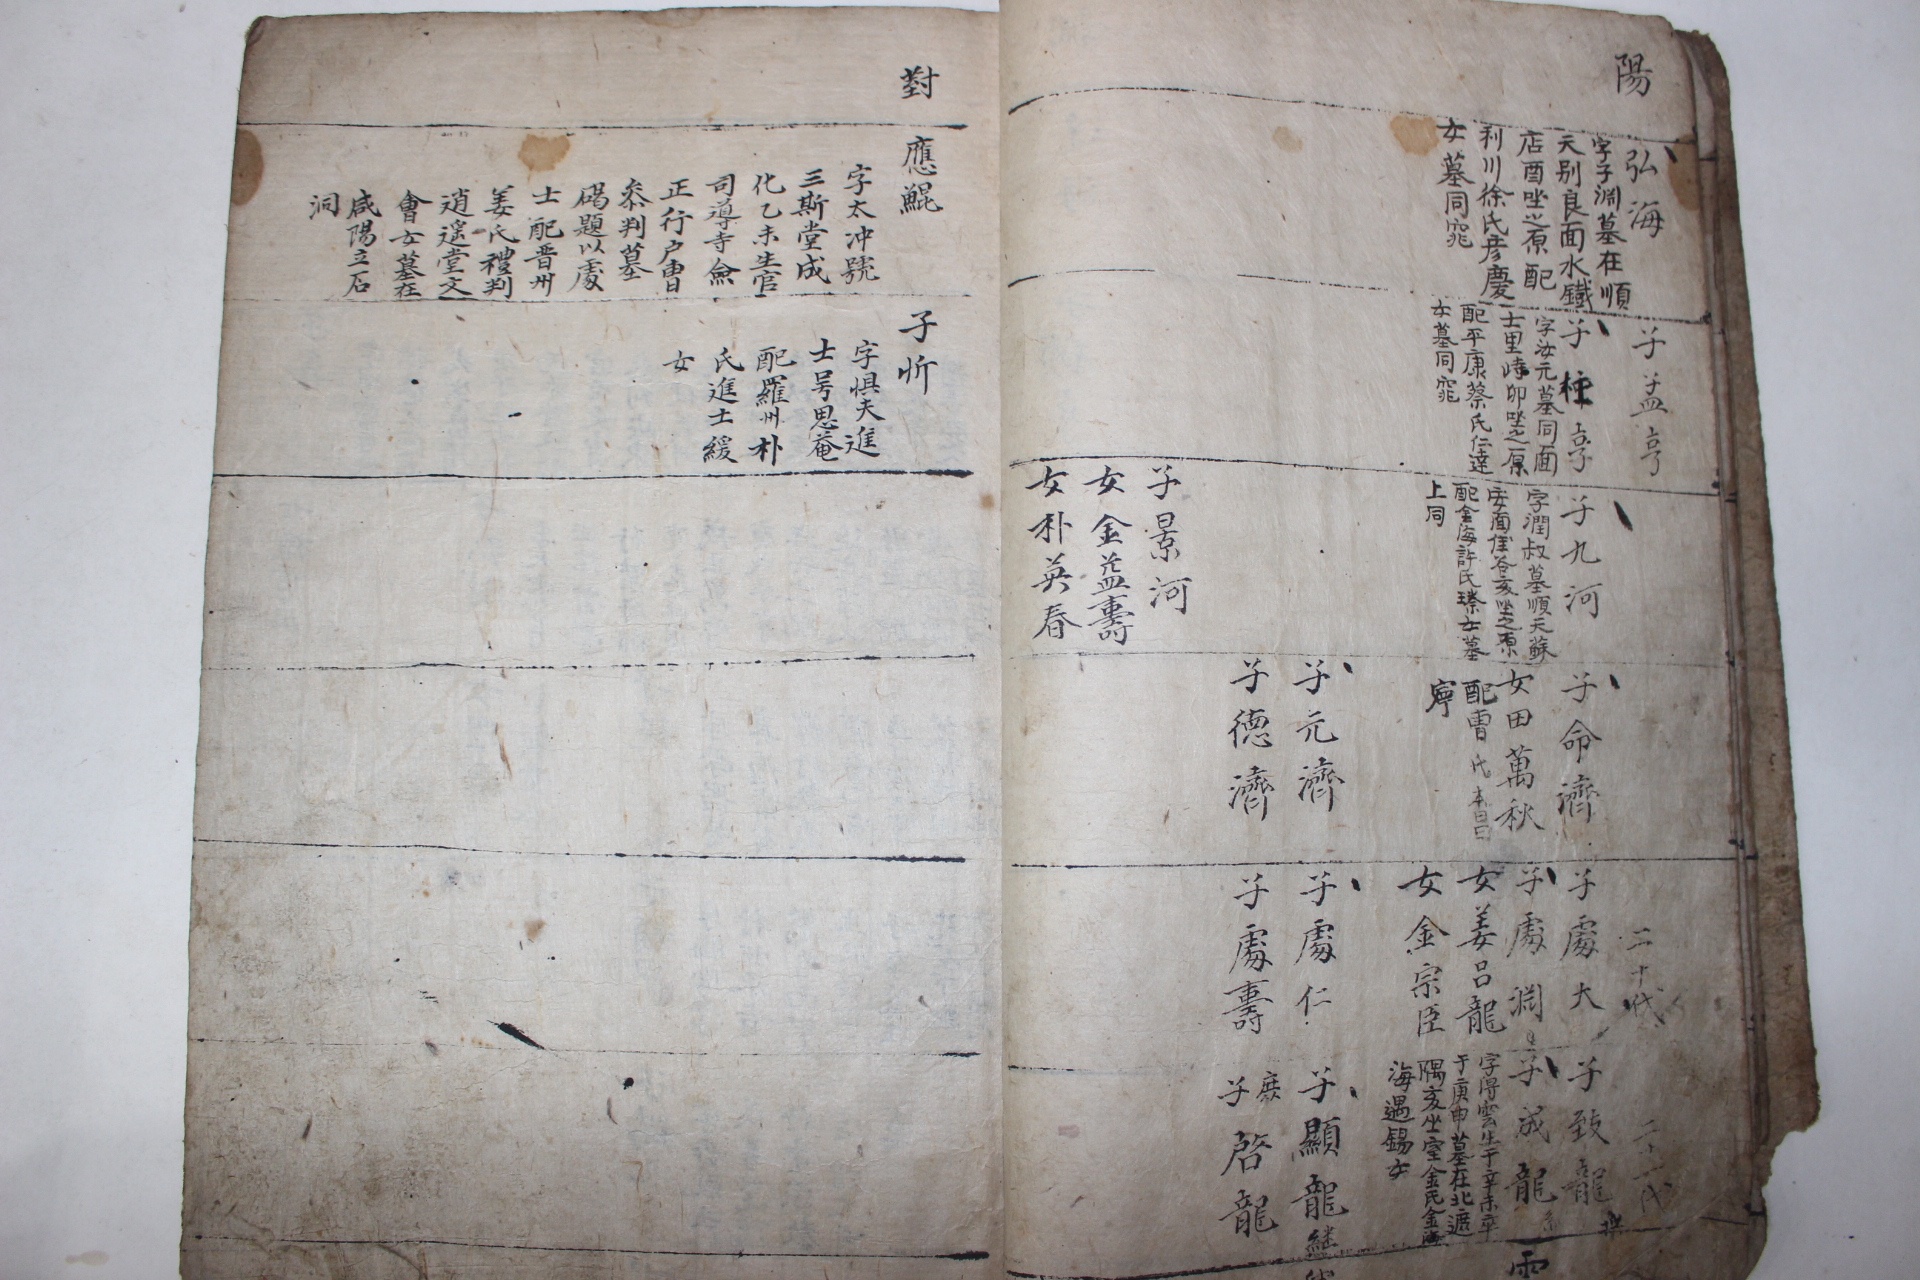 陽
弘海
字子淵墓在順
天别良面水鐵
店酉坐之原配
利川徐氏彦慶
女墓同窕
子孟亨
子柱亨
字汝元墓同面
士里峙卯坐之原
配平康蔡氏仁達
女墓同窕
子九河
字潤叔墓順天蘇
安面佳谷亥坐之原
配金海許氏璨女墓
上同
子景河
女金益壽
女朴英春
子命濟
女田萬秋
配曺氏本昌
寧
子元濟
子德濟
二十代
子處大
子處淵
女姜呂龍
女金宗臣
子處仁
子處壽
二十一代
子致龍
子成龍
字得雲生于辛未卒
于庚申墓在北遮
隅亥坐室金氏金海
海遇錫女
子顯龍
庶子啓龍
對
應鯤
字太冲號
三斯堂成
化乙未生官
司導寺僉
正行户曺
叅判墓
碣題以處
士配晋州
姜氏禮判
逍遥堂文
會女墓在
咸陽立石
洞
子忻
字惧夫進
士号思菴
配羅州朴
氏進士緩
女